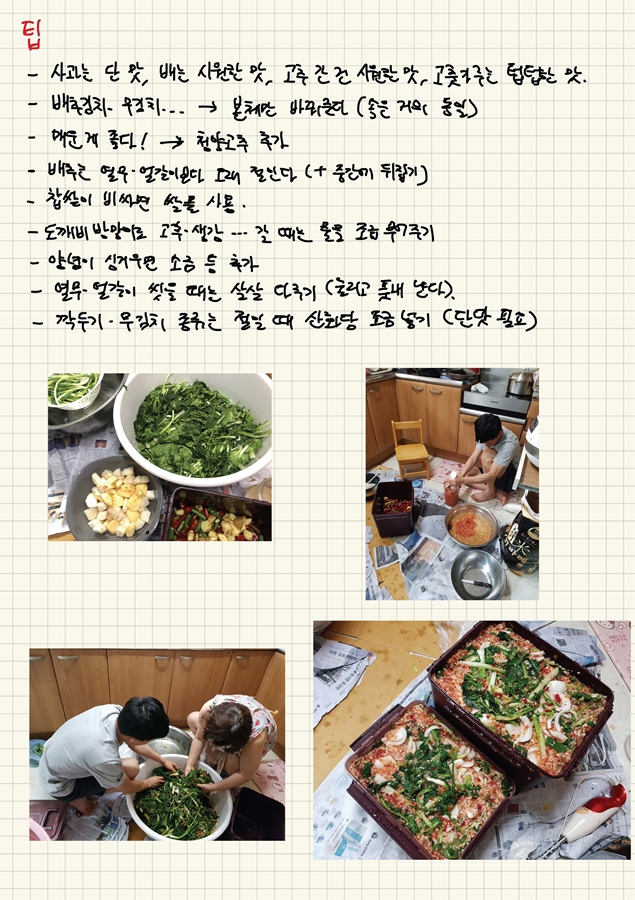 팁
- 사과는 단 맛, 배는 시원한 맛, 고추 간 건 시원한 맛, 고춧가루는 텁텁한 맛.
- 배추김치·무김치... → 본체만 바꿔준다 (속은 거의 동일)
- 매운게 좋다! → 청양고추 추가
- 배추는 열무·얼갈이보다 오래 절인다 (+ 중간에 뒤집기)
- 찹쌀이 비싸면 쌀을 사용.
- 도깨비 방망이로 고추·생강 ... 갈 때는 물을 조금 부어주기
- 양념이 싱거우면 소금 등 추가
- 열무·얼갈이 씻을 때는 살살 다루기 (놀라고 풋내 난다).
- 깍두기·무김치 종류는 절일 때 신화당 조금 넣기 (단맛 필요)